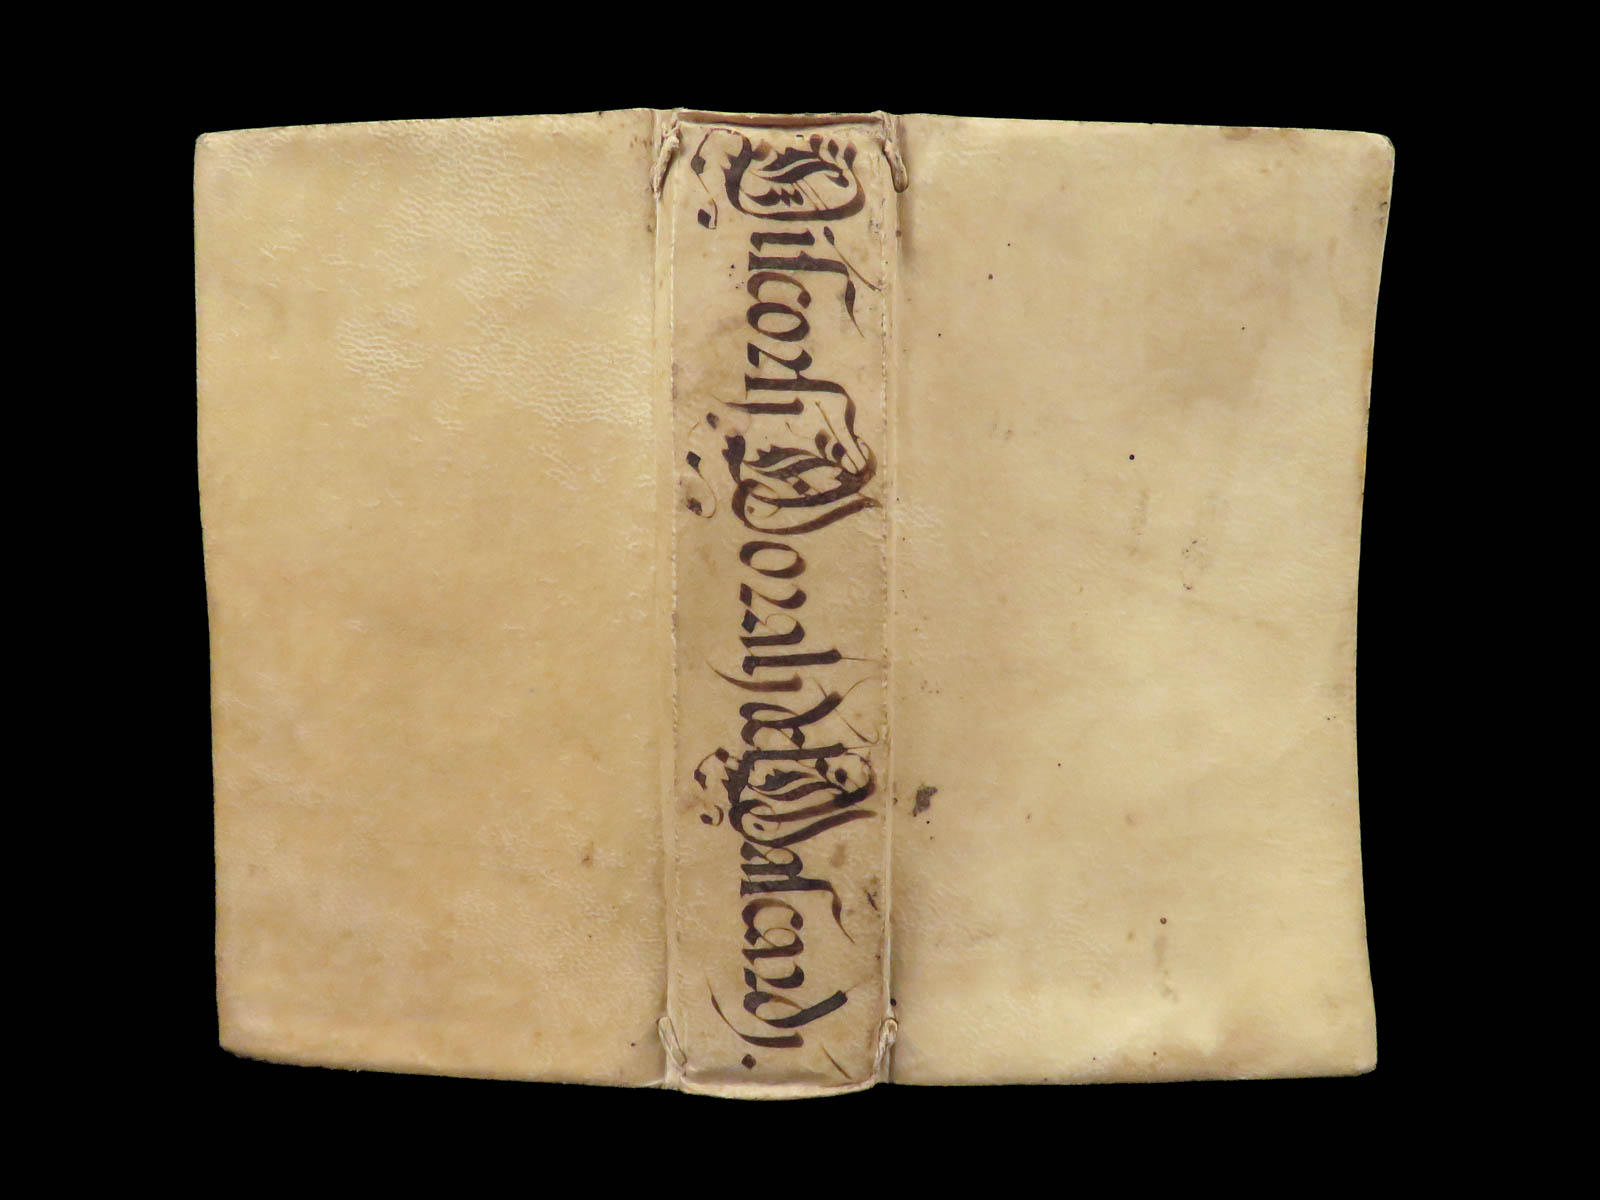 Discorsi Morali del Mascardi.